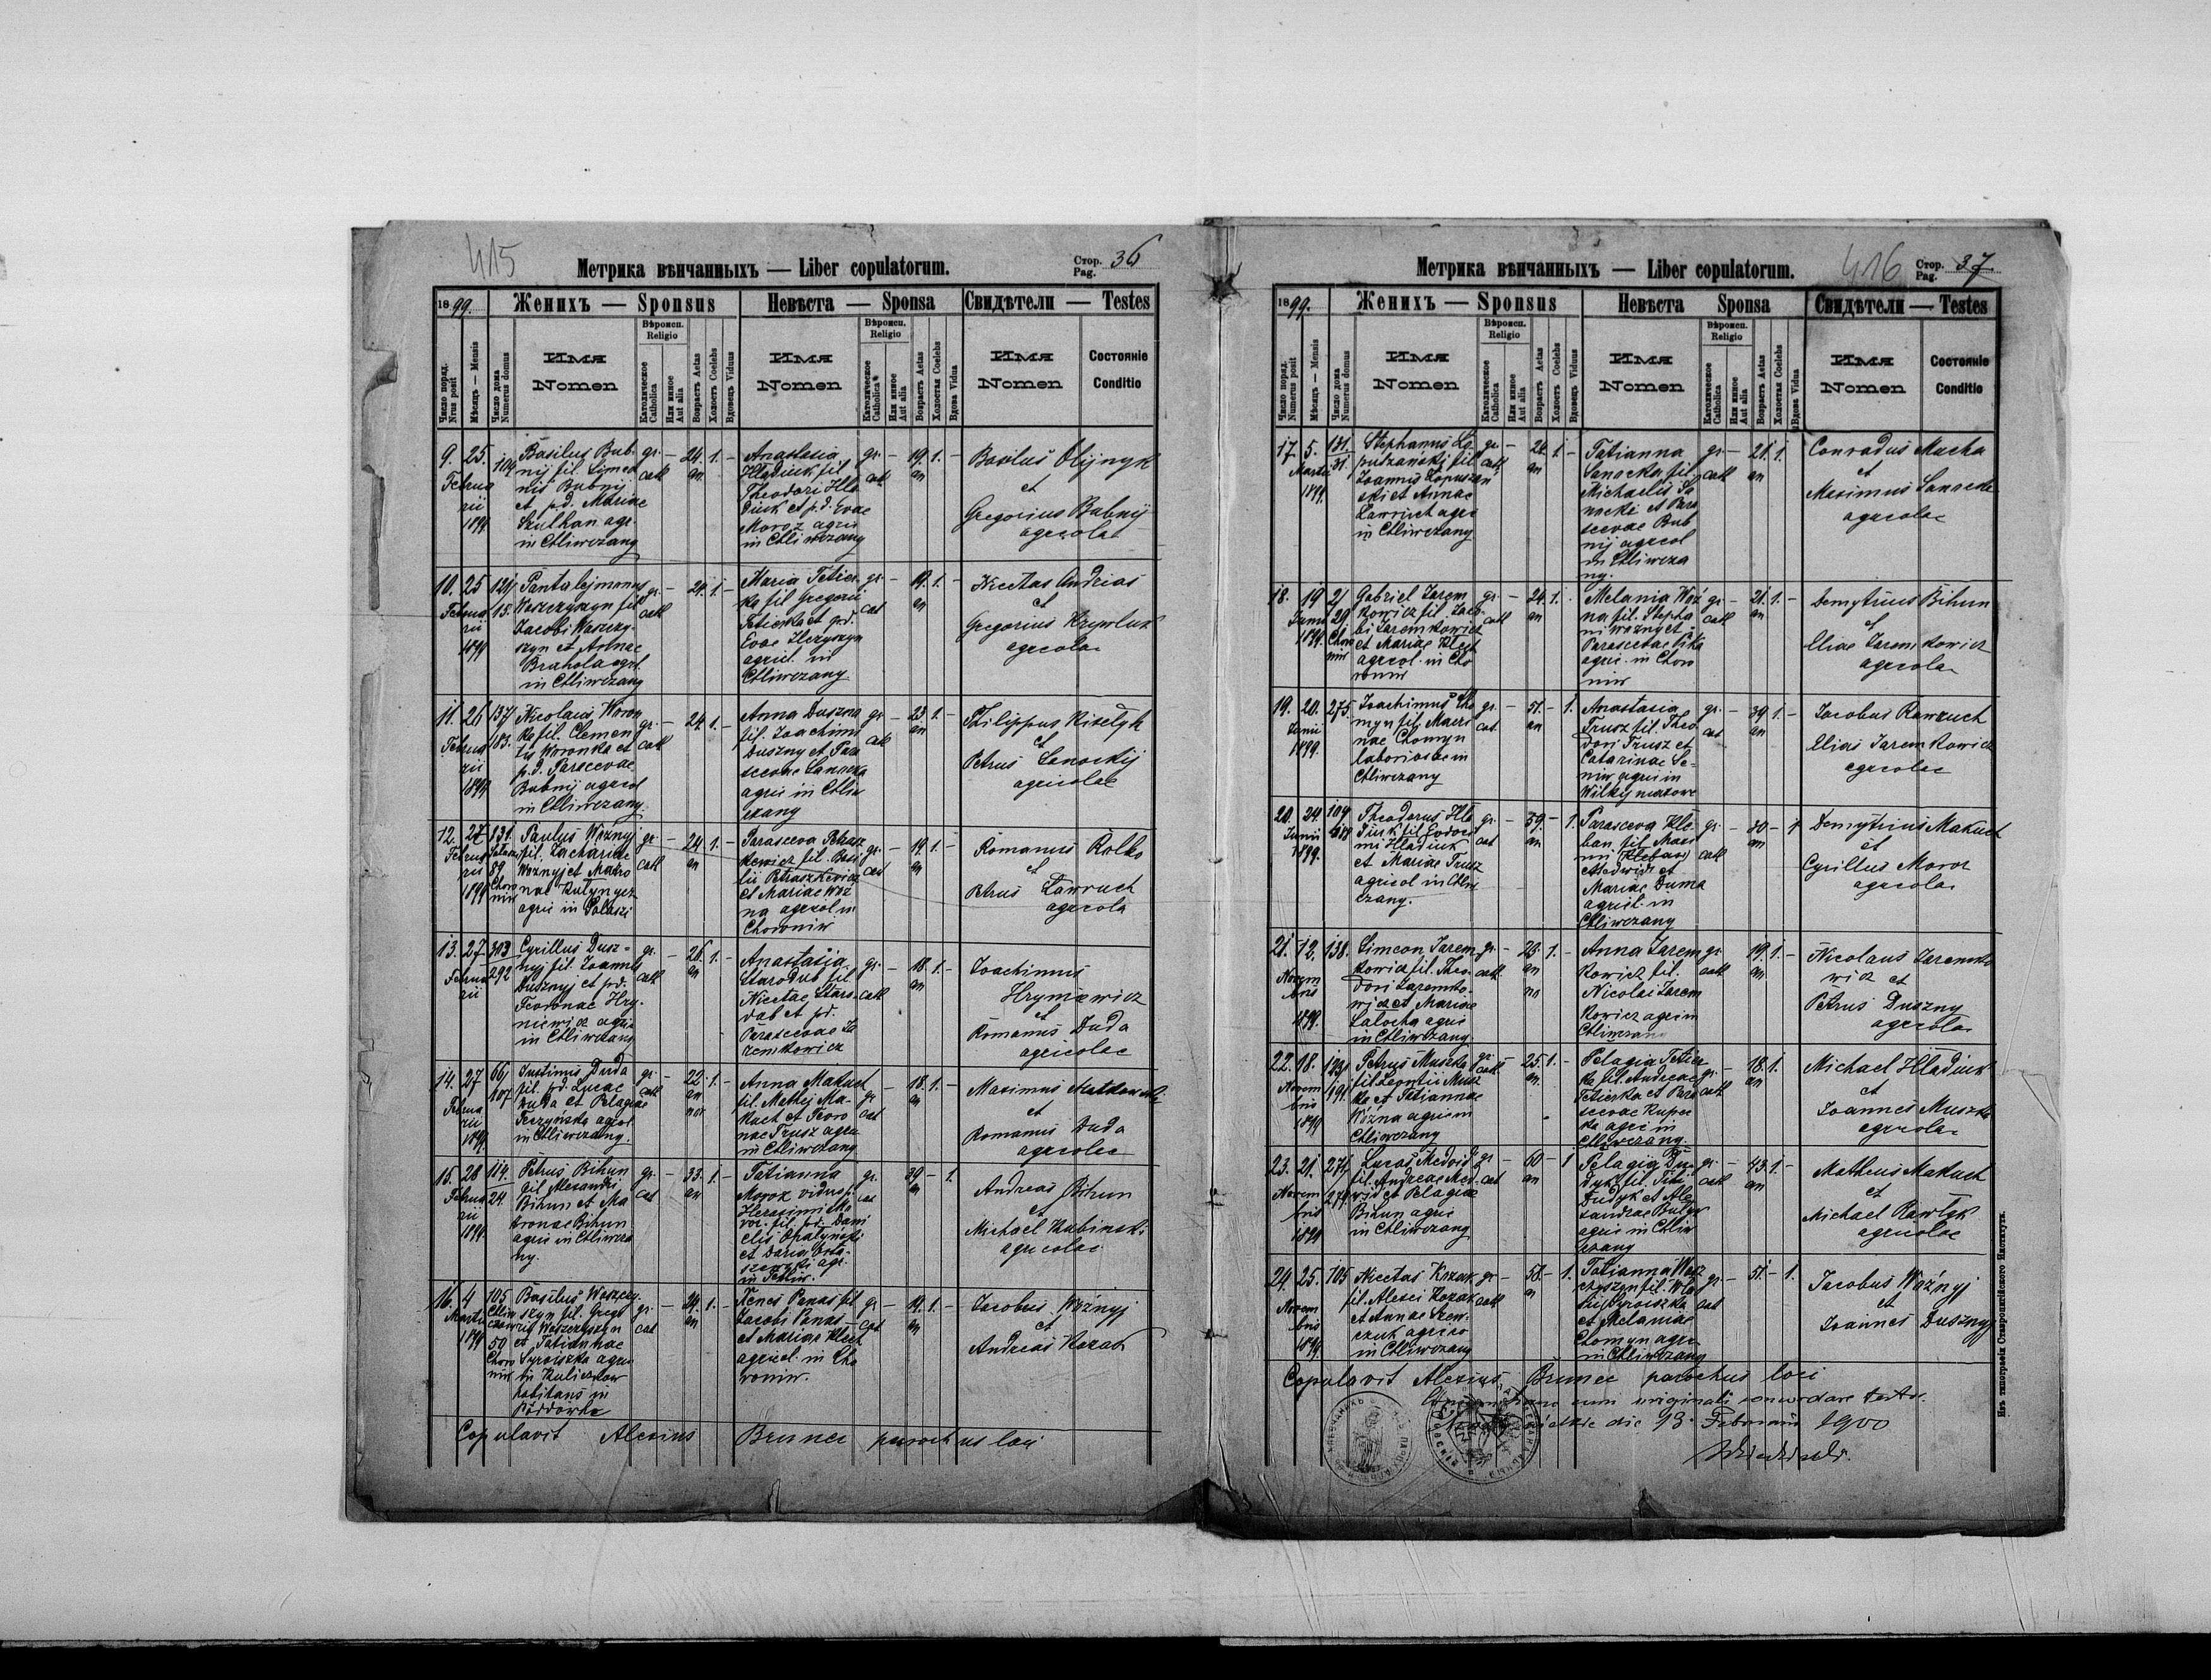 415
Метрика вѣнчанныхъ — Liber copulatorum.
Стор. Pag. 36
1899.
Женихъ — Sponsus
Невѣста — Sponsa
Свидѣтели — Testes
Число поряд. Nrus posit
Мѣсяцъ — Mensis
Число дома Numerus domus
Имя Nomen
Вѣроисп. Religio
Католическое Catholica
Или инное Aut alia
Возрастъ Aetas
Холостъ Coelebs
Вдовецъ Viduus
Имя Nomen
Вѣроисп. Religio
Католическое Catholica
Или инное Aut alia
Возрастъ Aetas
Холостая Coelebs
Вдова Vidua
Имя Nomen
Состояніе Conditio
9. 25. Februarii 1899
104
Basilius Bub
nij fil. Simeo
nis Bubnij
et p.d. Mariae
agr.
in Chliwczany
gr. cath — 24. an 1. —
Anastasia
Hladiuk fil.
Theodori Hla
diuk et p.d. Evae
Moroz agric
in Chliwczany
gr. cath — 19. an 1. —
Basilius Olijnyk
et
Gregorius Bubnij
agricolae
10. 25 Februarii 1899
121/15.
Pantalejmonus
Waszczyszyn fil
Jacobi Waszczy
szyn et Annae
Brahola agrl.
in Chliwczany
gr. cath — 24. 1. —
Maria Tetier
ka fil Gregorii
Tetierka et p.d.
Evae
agricl. in
Chliwczany.
gr. cat — 19. an 1. —
Nicetas Andrias
et
Gregorius Krywluk
agricolae
11. 26 Februarii 1899
137/183.
Nicolaus Woron
ka fil. Clemen
tis Woronka et
p.d. Parascevae
Bubnij agricol
in Chliwczany.
gr. cath — 24. 1. —
Anna Duszna
fil. Joachimi
Duszny et Para
scevae Sanocka
agric in Chliw
czany
gr. cath — 23. an 1. —
Philippus Kiselyk
et
Petrus Sanockij
agricolae
12. 27 Februarii 1899
131. Salasze 89 Choronin
Paulus Woźnyj
fil. Zachariae
Woznyj et Matro
nae
agric in Salaszi
gr. cath — 24. an 1. —
Parasceva Petrasz
kewicz fil. Basi
lii Petraszkewicz
et Mariae Woź
na agricol in
Choroniw
gr. cat — 19. an 1. —
Romanus Rolko
et
Petrus Ławruch
agricola
13. 27 Februarii
303/292
Cyrillus Dusz=
nyj fil. Joannis
Dusznyj et p.d.
Feoronae Hry
niewicz agric
in Chliwczany
gr. cath — 26. an 1. —
Anastasia
Starodub fil.
Nicetae Staro
dub et p.d.
Parascevae Ja
remkowicz
gr. cath — 18. an 1. —
Joachimus
Hryniewicz
et
Romanus Duda
agricolae
14. 27 Februarii 1899
66/107
Justinus Duda
fil. p.d. Lucae
Duda et Pelagiae
agrcol.
in Chliwczany.
gr. cath — 22 an 1. —
Anna Makuch
fil. Mathej Ma-
kuch et Feoro
nae Trusz agric
in Chliwczany
gr cat — 18. an 1. —
Maximus
et
Romanus Duda
agricolae
15. 28 Februarii 1899.
114/24
Petrus Bihun
fil Alexandri
Bihun et Ma
tronae Bihun
agric in Chliwcza
ny.
gr. cat — 33. an 1. —
Tatianna
Moroz vidua p.
Herasimi Mo
roz. fil. p.d. Dani
elis
et Daria
agr.
gr. cat — 39 an — 1.
Andreas Bihun
et
Michael Kubinski
agricolae
16. 4 Martii 1899
105 Chliwczany 50 Choroniw
Basilius Waszczy
szyn fil. Grego
rii Waszczyszyn
et Tatiannae
Syroiszka agric
in Kuliczkow
habitans in
gr. cat — 24. an 1. —
Xenes Panas fil
Jacobi Panas
et Mariae Klect
agricol. in Cho
roniw.
gr — cat 19. an 1. —
Jacobus Woźnyj
et
Andreas Kozak
Copulavit Alexius Brunec parochus loci
Метрика вѣнчанныхъ — Liber copulatorum.
416
Стор. Pag. 37
1899.
Женихъ — Sponsus
Невѣста Sponsa
Свидѣтели — Testes
Число поряд. Numerus posit
Мѣсяцъ — Mensis
Число дома Numerus domus
Имя Nomen
Вѣроисп. Religio
Католическое Catholica
Или инное Aut alia
Возрастъ Aetas
Холостъ Coelebs
Вдовецъ Viduus
Имя Nomen
Вѣроисп. Religio
Католическое Catholica
Или инное Aut alia
Возрастъ Aetas
Холостая Coelebs
Вдова Vidua
Имя Nomen
Состояніе Conditio
17. 5. Martii 1899.
131/31.
Stephanus Ło
puszański fil.
Joannis Łopuszań
ski et Annae
Ławruch agric
in Chliwczany
gr. cath — 24 an 1. —
Tatianna
Sanocka fil.
Michaelis Sa
nocki et Para
scevae Bub
nij agricol
in Chliwcza
ny.
gr — cath 21. an 1.
Conradus Mucha
et
Maximus Sanocki
agricolae
18. 19 Junii 1899.
2/29 Choroniw
Gabriel Jarem
kowicz fil. Jaco-
bi Jaremkowicz
et Mariae Klect
agricol. in Cho
roniw
gr. cath — 24. an 1. .
Melania Woź
na fil. Stepha
ni Wozny et
Parascevae Pika
agric. in Choro
niw
gr — cath 21. an 1. —
Demytrius Bihun
et
Elias Jaremkowicz
agricolae
19. 20. Junii 1899.
275.
Joachimus Cho
myn fil. Matro
nae Chomyn
laboriosae in
Chliwczany
gr. cat. — 51. an — 1.
Anastasia
Trusz fil. Theo
dori Trusz et
Catarinae Se-
niw agric in
Wilky mazowe
gr. cat — 39 an 1. —
Jacobus Rawruch
Elias Jaremkowicz
agricolae
20. 24 Junii 1899.
104
Theodorus Hla
diuk fil Eudoci
mi Hladiuk
et Mariae Trusz
agricol in Chliw
czany.
gr. cat — 39. an — 1.
Parasceva Kle
ban fil. Maxi
mi (Kleban)
Medwid et
Mariae Duma
agricl. in
Chliwczany
gr. cath — 30 an — 1
Demytrius Makuch
et
Cyrillus Moroz
agricolae
21. 12. Novembris 1899.
138.
Simeon Jarem
kowicz fil. Theo
dori Jaremko
wicz et Mariae
Salocha agric
in Chliwczany.
gr. cath — 23. an 1. —
Anna Jarem
kowicz fil.
Nicolai Jarem
kowicz agr in
Chliwczany
gr. cath 19. an 1. —
Nicolaus Jaremko
wicz et
Petrus Duszny
agricolae
22. 18. Novembris 1899
193/191.
Petrus Muszka
fil Leontii Musz
ka et Tatiannae
Wożna agric in
Chliwczany
gr. cath — 25. an. 1. —
Pelagia Tetier
ka fil. Andreae
Tetierka et Para
scevae Kupec
ka agri in
Chliwczany.
gr. cath — 18. an 1.
Michael Hladiuk
et
Joannes Muszka
agricolae
23. 21. Novembris 1899
274/274
Lucas Medvid
fil. Andreae Med
wid et Pelagiae
Bihun agric
in Chliwczany
gr — cat 60 an — 1
Pelagia Du
dyk fil. Titi
Dudyk et Ale
xandrae
agric in Chliw
czany
gr. cath — 43. an 1. —
Matheus Makuch
et
Michael Rawlyk
agricolae
24. 25. Novembris 1899.
105
Nicetas Kozak
fil. Alexei Kozak
et Annae Szew-
czuk agrico
in Chliwczany
gr — cath 58. a — 1.
Tatianna Wasz
czyszyn fil. Wła
Syroiszka
et Melaniae
Chomyn agric
in Chliwczany
gr. cat — 51. — 1.
Jacobus Woźnyj
et
Joannes Dusznyj
Copulavit Alexius Brunec parochus loci
cum originali concordare testor.
die 13 Februarii 1900
Изъ типографіи Ставропигійского Института.